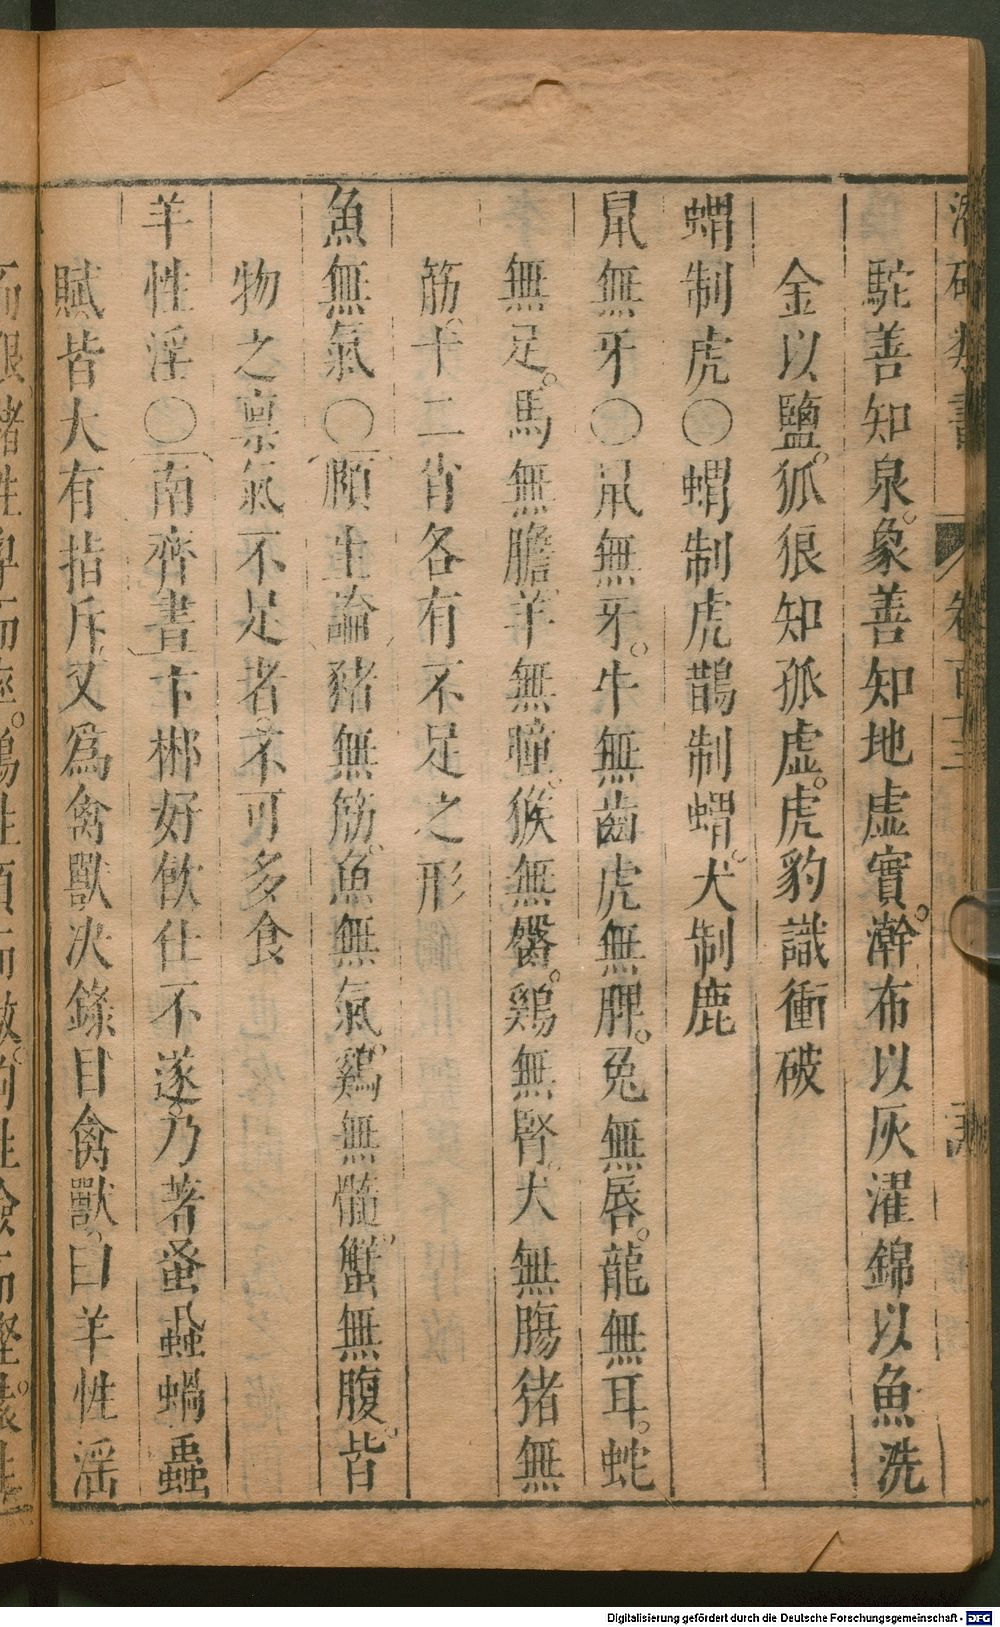 潛確類書 卷百十三
駝善知泉。象善知地虛實。澣布以灰濯錦以魚洗
金以鹽。狐狼知孤虛。虎豹識衝破
蝟制虎○蝟制虎鵲制蝟。犬制鹿
鼠無牙○鼠無牙。牛無齒虎無脾。兔無唇。龍無耳。蛇
無足。馬無膽羊無瞳。猴無臀。鷄無腎。犬無腸猪無
筋。十二肖各有不足之形
魚無氣○願生論豬無筋。魚無氣。鷄無髓。蟹無腹。皆
物之稟氣不足者。不可多食
羊性淫○南齊書卞彬好飲仕不遂。乃著蚤虱蝸蟲
賦皆大有指斥又爲禽獸决錄。目禽獸。曰羊性淫
而狠。猪性卑而
Digitalisierung gefördert durch die Deutsche Forschungsgemeinschaft - DFG